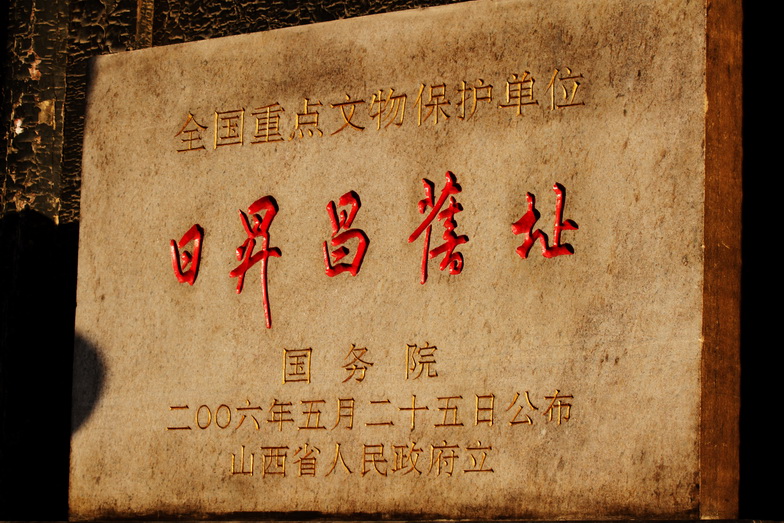 全国重点文物保护单位
日昇昌舊址
国务院
二〇〇六年五月二十五日公布
山西省人民政府立